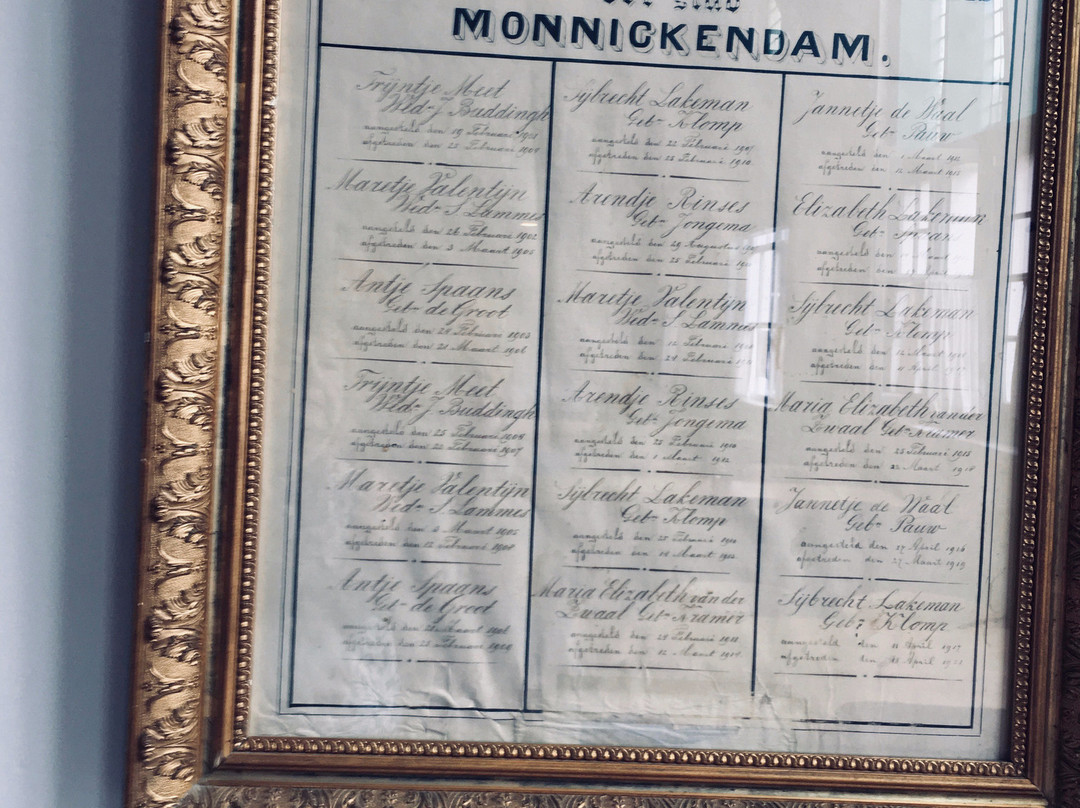 MONNICKENDAM.
Trijntje Meet
Wed- J Buddingh
aangesteld den 19 Februari
afgetreden den 25 Februari 1904
Maretje Valentijn
Wed- S Lammes
aangesteld den 26 Februari 1902
afgetreden den 3 Maart 1905
Antje Spaans
Geb- de Groot
aangesteld den Februari 1903
afgetreden den Maart 1906
Trijntje Meet
Wed- J Buddingh
aangesteld den 25 Februari 1904
afgetreden den 22 Februari 1907
Maretje Valentijn
Wed- S Lammes
aangesteld den 3 Maart 1905
afgetreden den 12 Februari 1908
Antje Spaans
Geb- de Groot
aangesteld den Maart
afgetreden den
Sijbrecht Lakeman
Geb- Klomp
aangesteld den 22 Februari 1907
afgetreden den Februari 1910
Arendje Rinses
Geb- Jongema
aangesteld den 29 Augustus
afgetreden den 25 Februari
Maretje Valentijn
Wed- S Lammes
aangesteld den Februari
afgetreden den Februari
Arendje Rinses
Geb- Jongema
aangesteld den Februari
afgetreden den 1 Maart 1912
Sijbrecht Lakeman
Geb- Klomp
aangesteld den Februari
afgetreden den Maart
Maria Elizabeth van der
Zwaal Geb- Kramer
aangesteld den Februari
afgetreden den 12 Maart
Jannetje de Waal
Geb- Pauw
aangesteld den 1 Maart
afgetreden den 12 Maart
Elizabeth Lakeman
Geb-
aangesteld den
afgetreden den
Sijbrecht Lakeman
Geb- Klomp
aangesteld den Maart
afgetreden den April
Maria Elizabeth van der
Zwaal Geb- Kramer
aangesteld den Februari 1915
afgetreden den Maart 1918
Jannetje de Waal
Geb- Pauw
aangesteld den 27 April 1916
afgetreden den 27 Maart 1919
Sijbrecht Lakeman
Geb: Klomp
aangesteld den April 1917
afgetreden den April